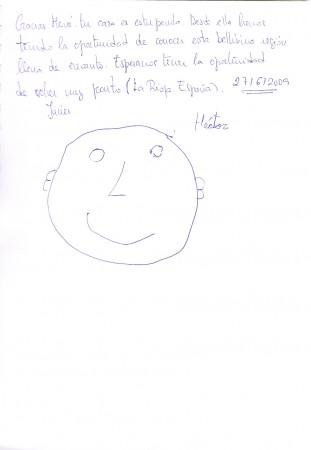 Gracias Hervé. tu casa es estupenda. Desde ella hemos
tenido la oportunidad de conocer esta bellísima región
llena de encanto. Esperamos tener la oportunidad
de volver muy pronto (La Rioja. España). 27/6/2009
Javier
Héctor